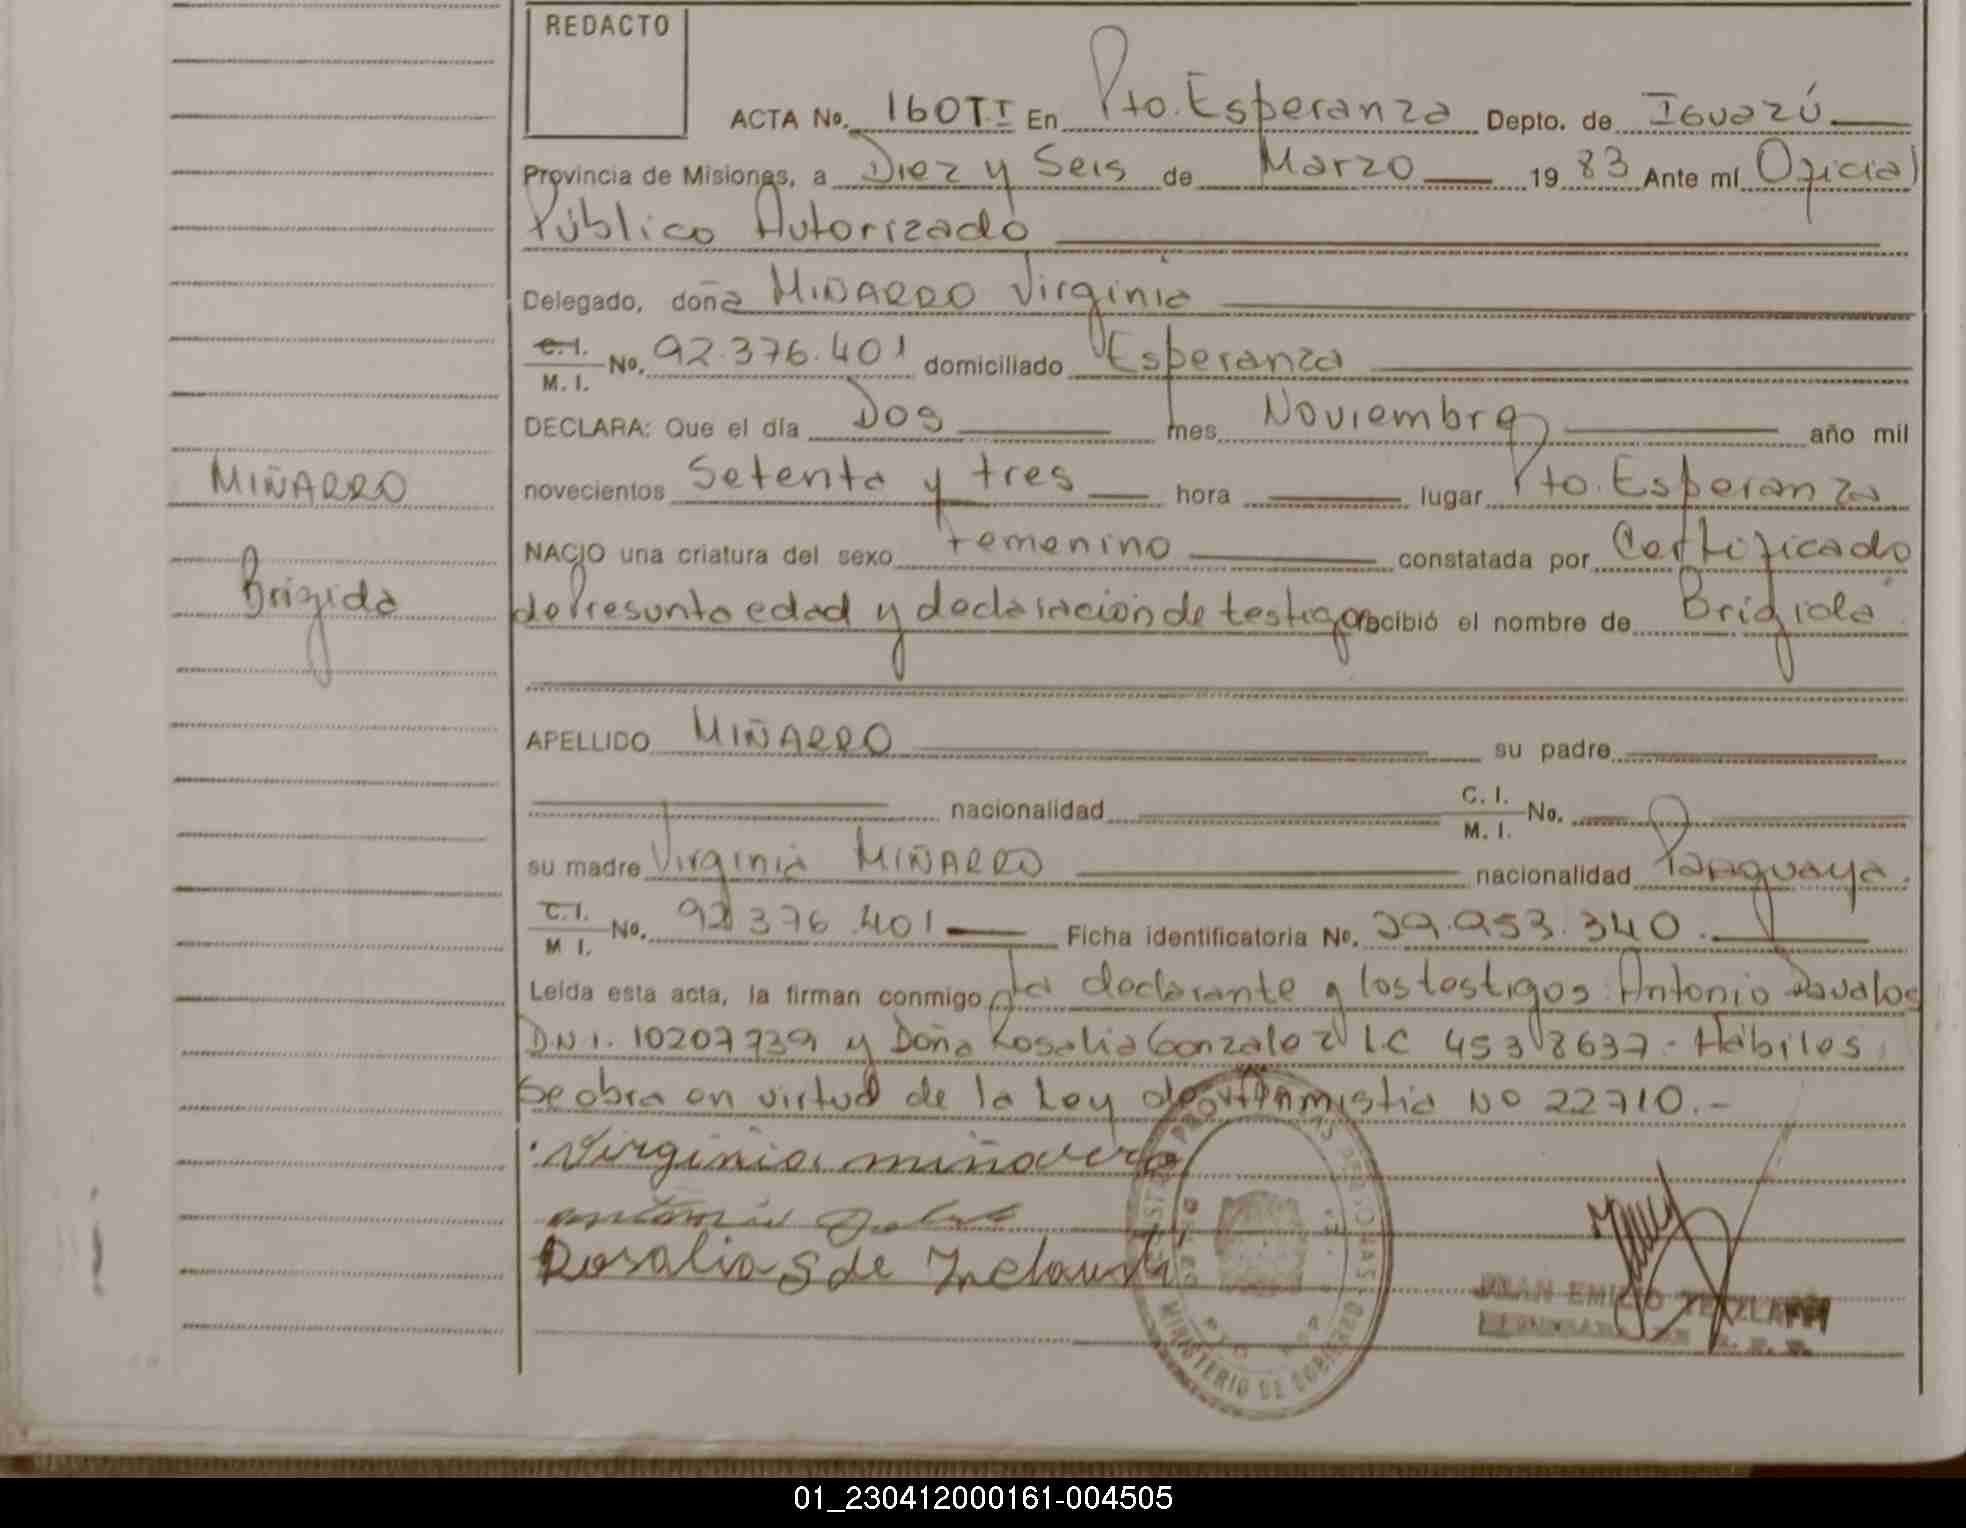 REDACTO
ACTA No. 160 T.I En Pto. Esperanza Depto. de Iguazú
Provincia de Misiones, a Diez y Seis de Marzo 19 83 Ante mí Oficial
Público Autorizado
Delegado, doña MIÑARRO Virginia
C.I. M.I. No. 92.376.401 domiciliado Esperanza
DECLARA: Que el día Dos mes Noviembre año mil
MIÑARRO
novecientos Setenta y tres hora lugar Pto. Esperanza
NACIO una criatura del sexo femenino constatada por Certificado
Brigida
de Presunta edad y declaración de testigo recibió el nombre de Brigida
APELLIDO MIÑARRO su padre
nacionalidad C.I. M.I. No.
su madre Virginia MIÑARRO nacionalidad Paraguaya.
C.I. M I. No. 92 376.401 Ficha identificatoria No. 29.953.340.
Leída esta acta, la firman conmigo la declarante y los testigos: Antonio Davalos
D.N.I. 10207739 y Doña Rosalia Gonzalez L.C 4538637 - Hábiles
Se obra en virtud de la Ley de Amnistia No 22710.-
Virginia miñarro
Rosalia S de
MINISTERIO DE GOBIERNO
JUAN EMILIO
01_230412000161-004505